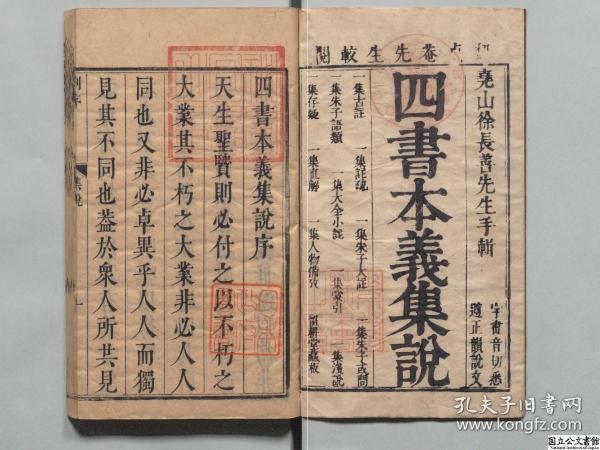 先生較閱
堯山徐長善先生手輯
字畫音切悉
遵正韻說文
四書本義集說
一集古註 一集註疏 一集朱子大註 一集朱子或問
一集朱子語類 一集大全小註 一集蒙引 一集淺說
一集存疑 一集直解 一集人物備攷 留耕堂藏板
四書本義集說序
天生聖賢則必付之以不朽之
大業其不朽之大業非必人人
同也又非必卓異乎人人而獨
見其不同也葢於衆人所共見
集說
一
孔夫子旧书网
www.kongfz.com
国立公文書館
National Archives of Japan